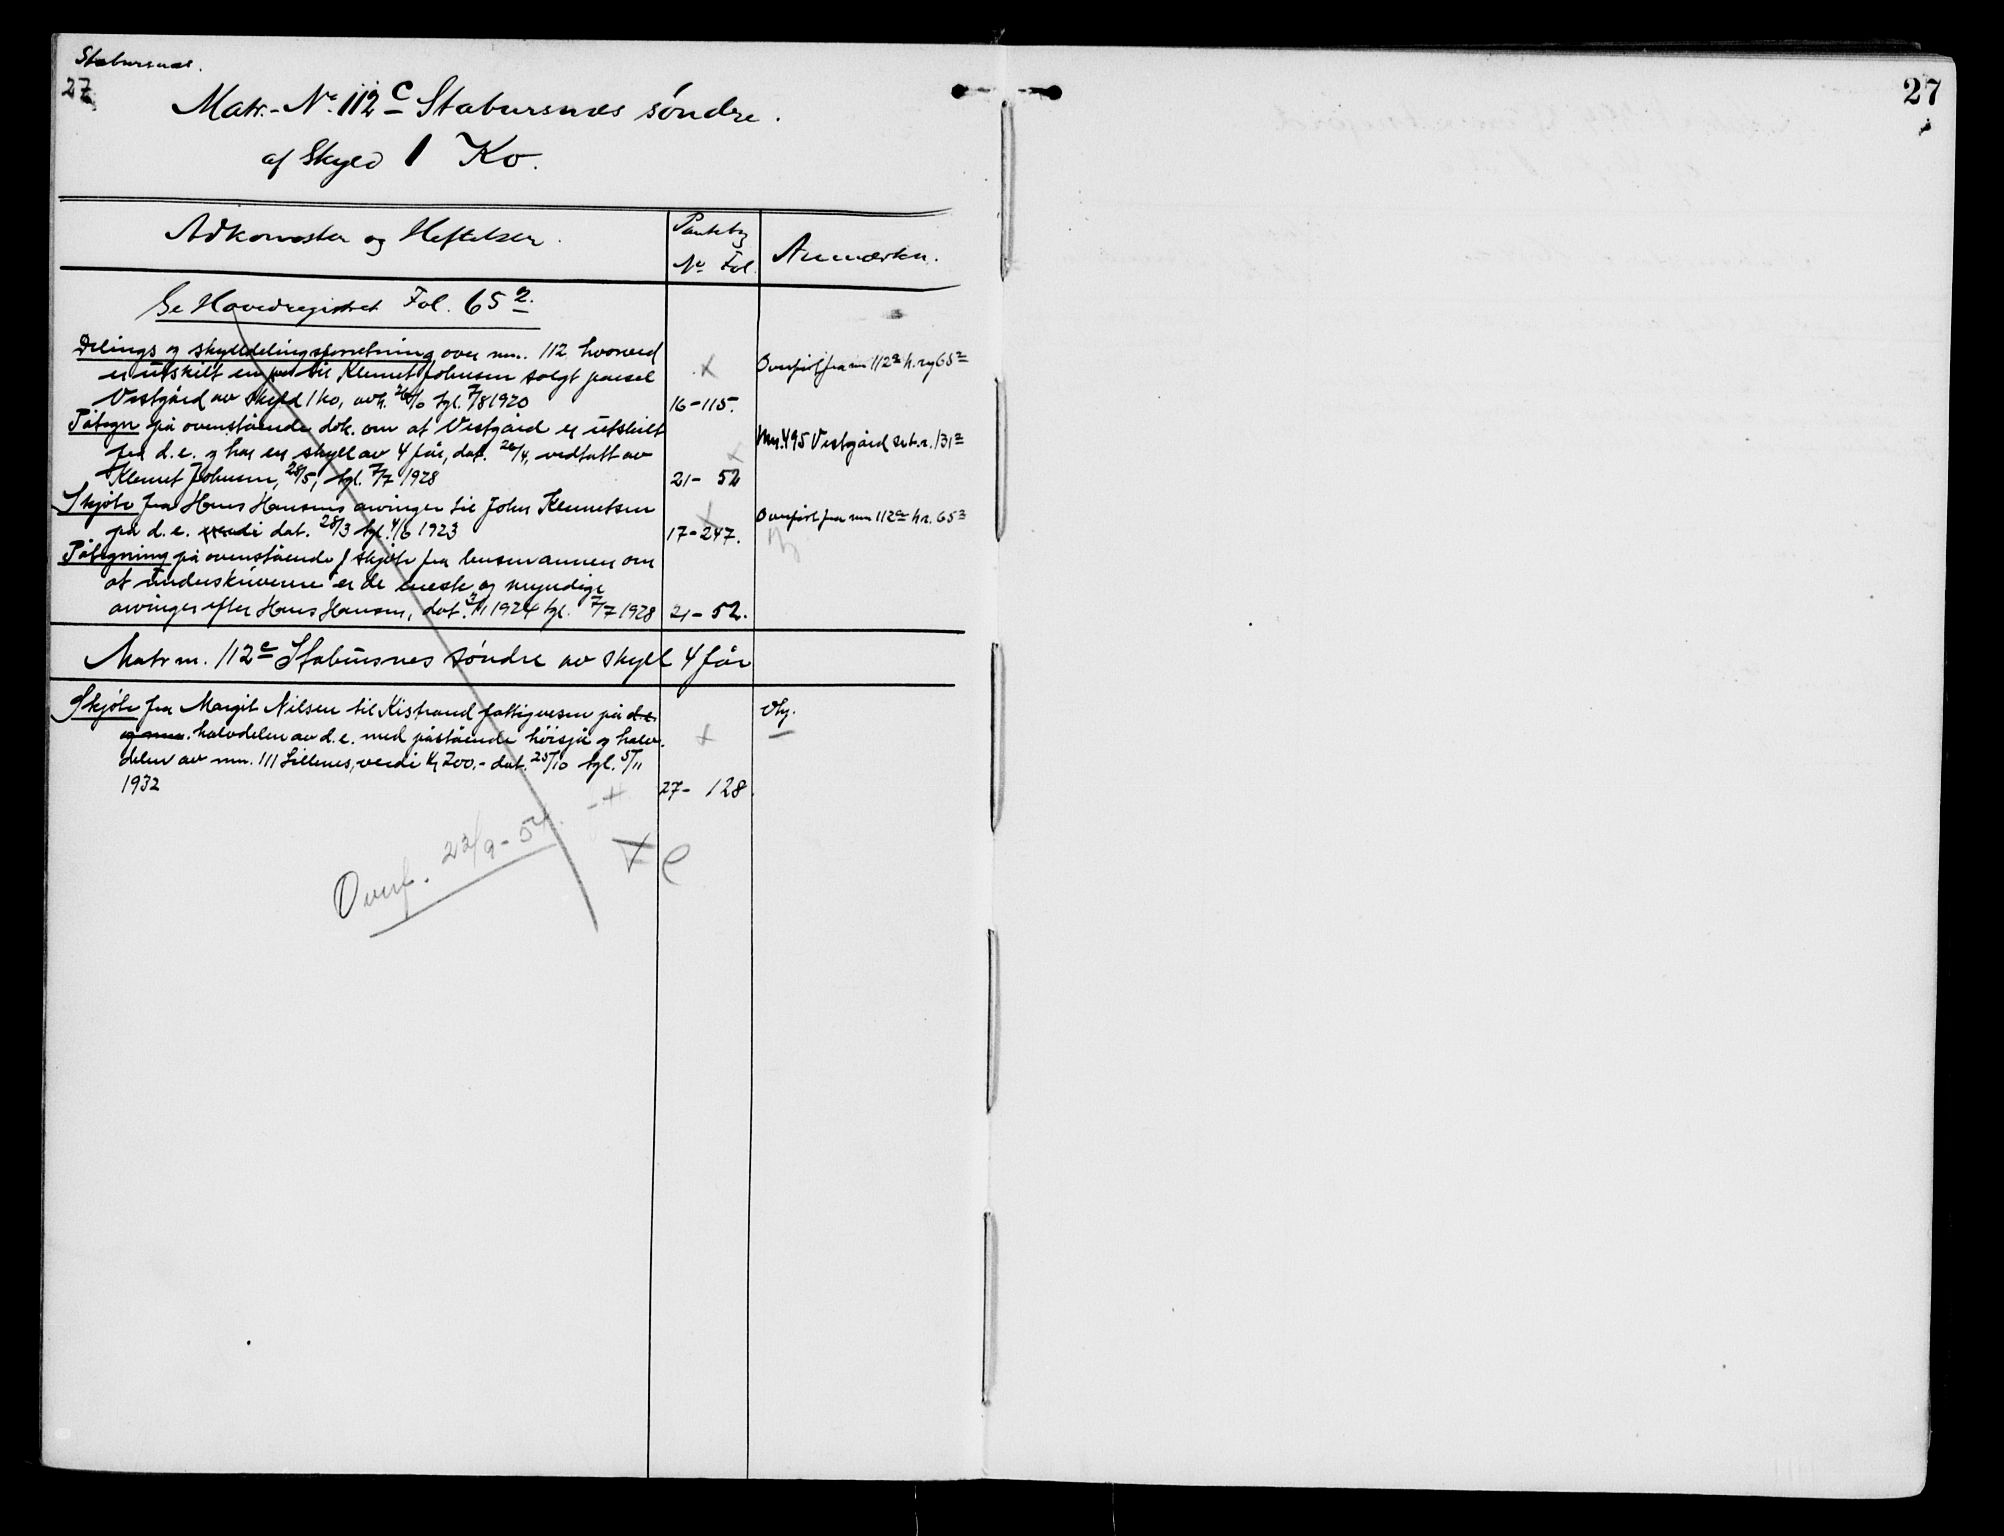 Stabursnæs.
27
27
Matr.-No 112 c Stabursnæs söndre.
af Skyld 1 Ko.
Adkomster og Heftelser. Pantebog No Fol. Anmærkn.
Se Hovedregistret Fol. 65 2.
Delings og skylldelingsforretning over mn. 112 hvorved
er utskilt en til Klemet Johnsen solgt parsel
Vestgård av skyld 1 ko, avh. /10 tgl. 7/8 1920 16-115. Overfört fra mn 112 a h. rg 65 2
Påtegn på ovenstående dok. om at Vestgård er utskilt
fra d.e. og har en skyll av 4 får, dat. 26/4, vedtatt av
Klemet Johnsen, 28/5, tgl. 7/7 1928 21- 52 Mn. 495 Vestgård se h.r. 131 a
Skjöte fra Hans Hansens arvinger til John Klemetsen
på d.e. dat. 28/3 tgl. 4/6 1923 17-247. Overfört fra mn 112 a h.r. 65 2
Påtegning på ovenstående skjöte fra lensmannen om
at underskriverne er de eneste og myndige
arvinger efter Hans Hansen, dat. 3/11 1924 tgl. 7/7 1928 21- 52.
Matr n. 112 c Stabursnes söndre av skyll 4 får
Skjöte fra Margit Nilsen til Kistrand fattigvesen på d.e.
halvdelen av d.e. med påstående höisjå og halv-
delen av mn. 111 Lillenes, verdi kr 200.- dat. 25/10 tgl. 5/11
1932 27- 128.
Overf. 22/9-54.